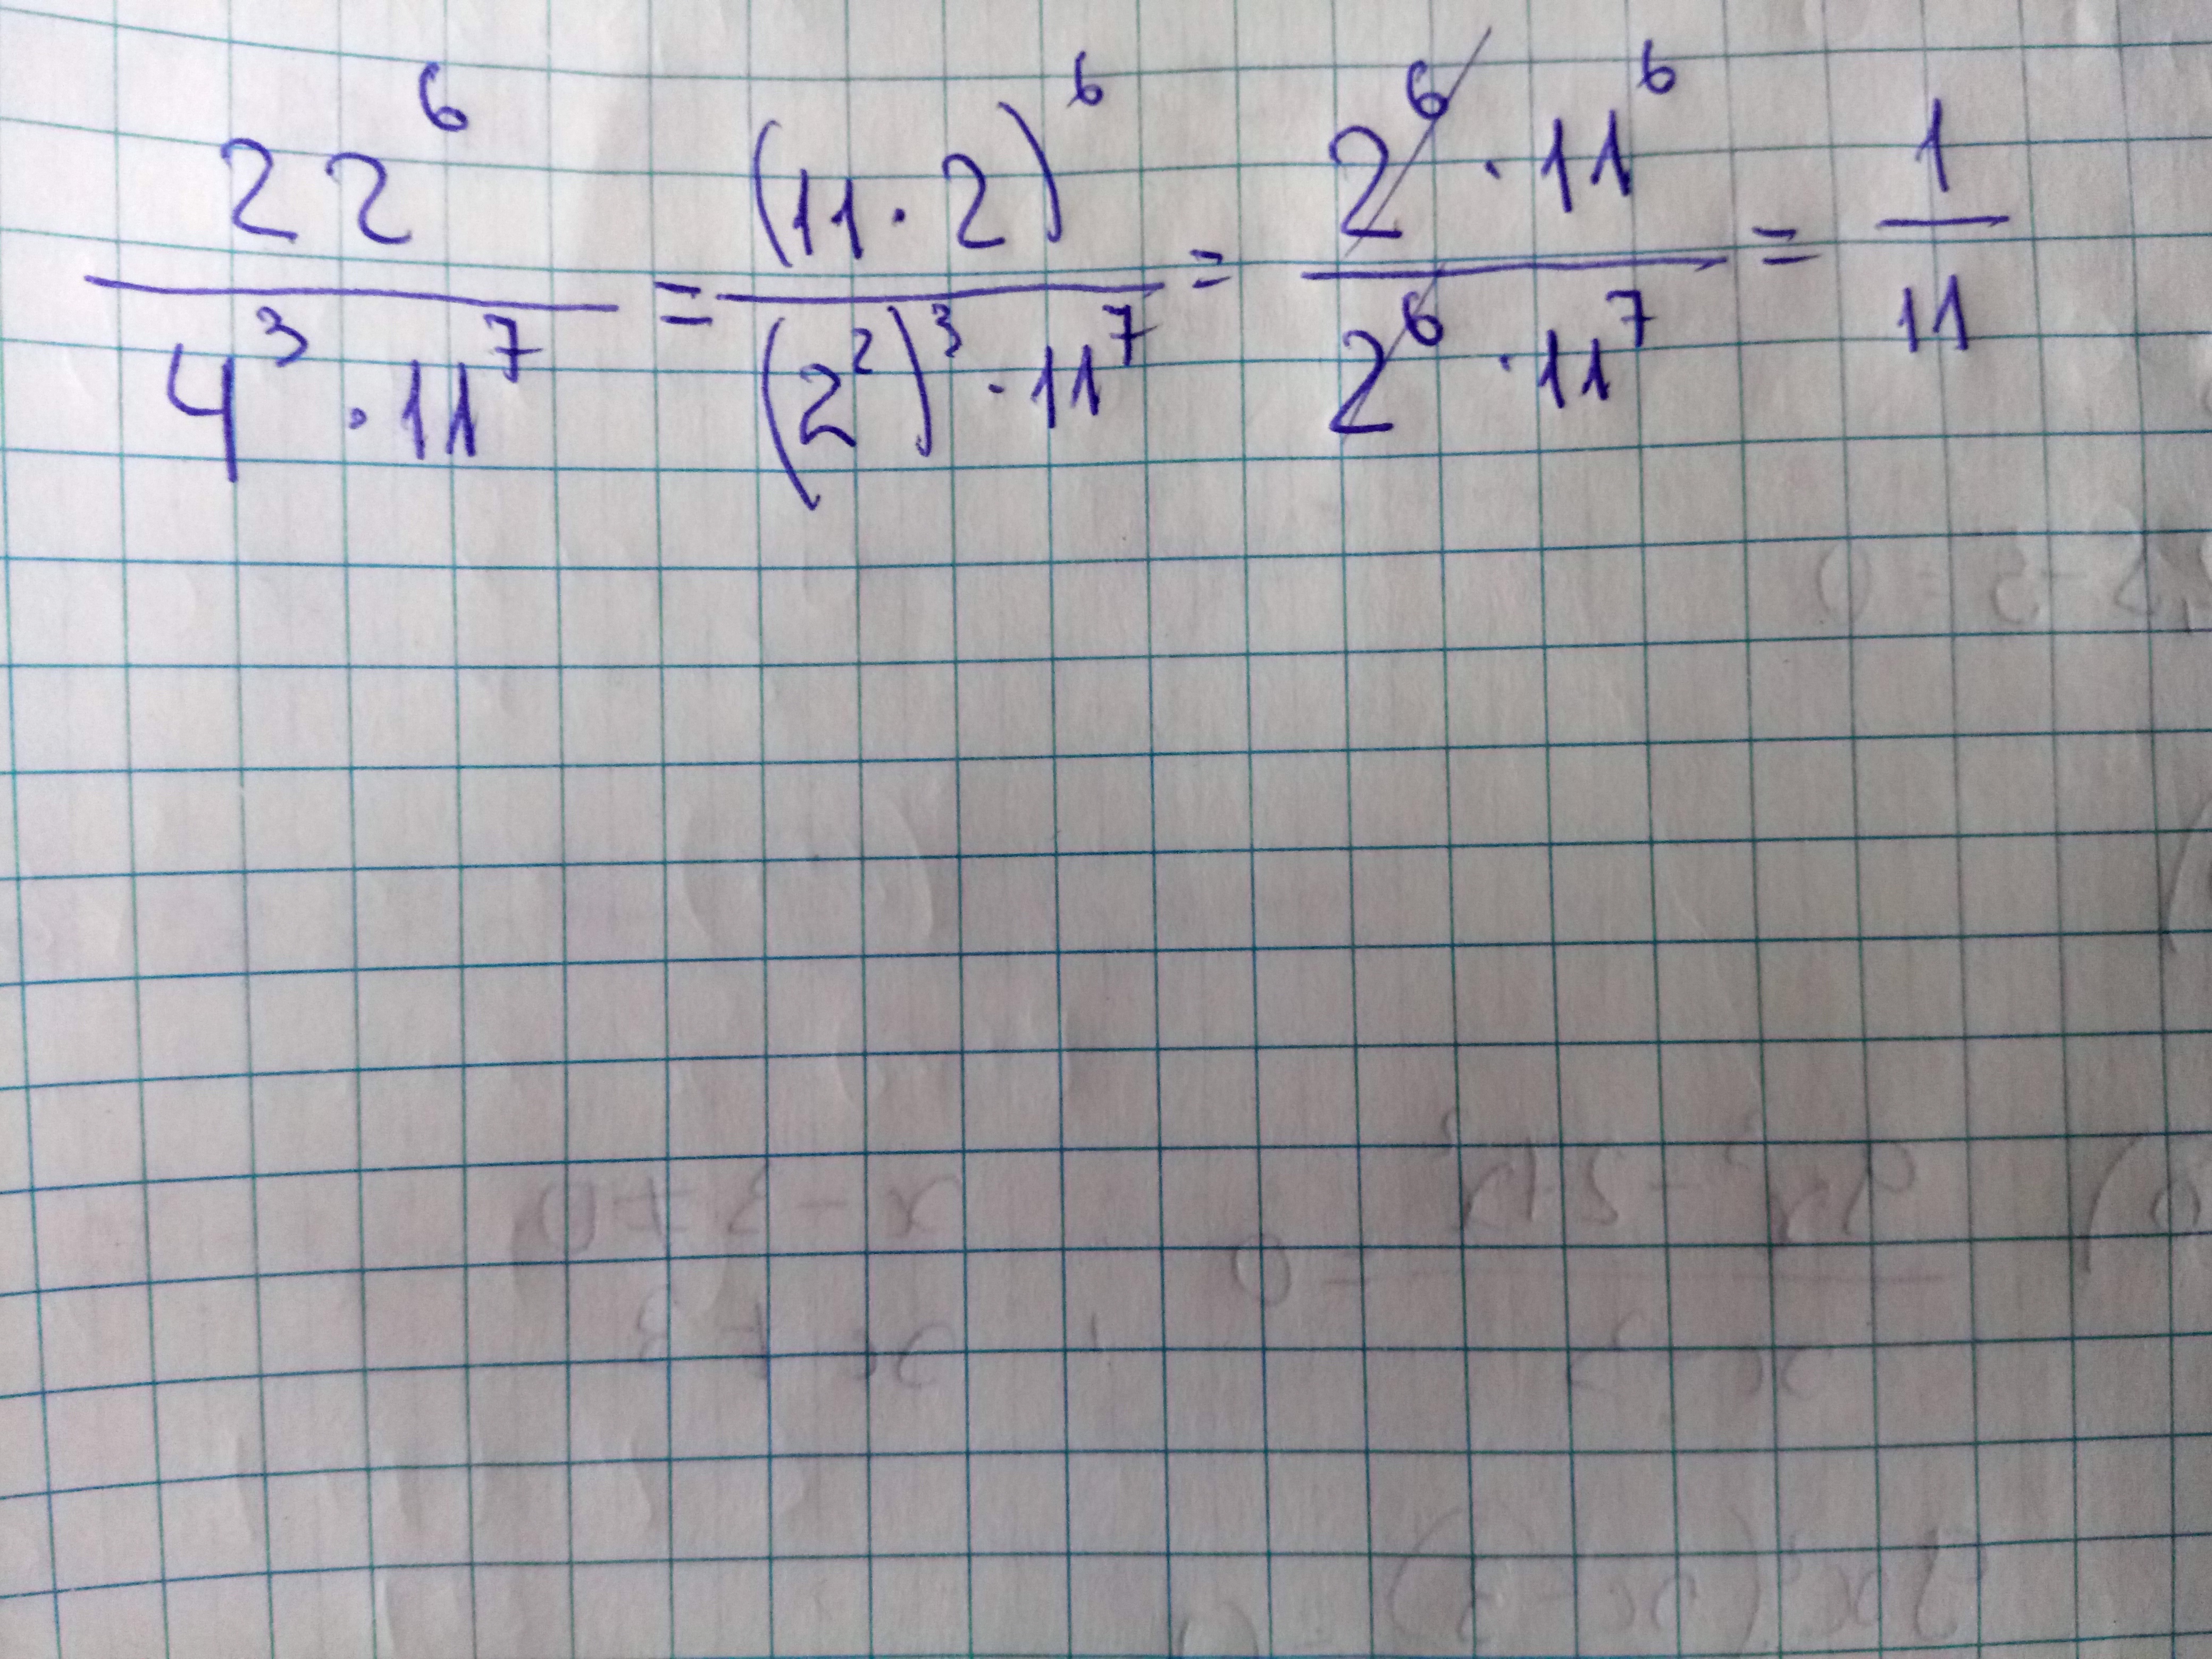 22^6 / (4^3 · 11^7) = (11 · 2)^6 / ((2^2)^3 · 11^7) = (2^6 · 11^6) / (2^6 · 11^7) = 1 / 11